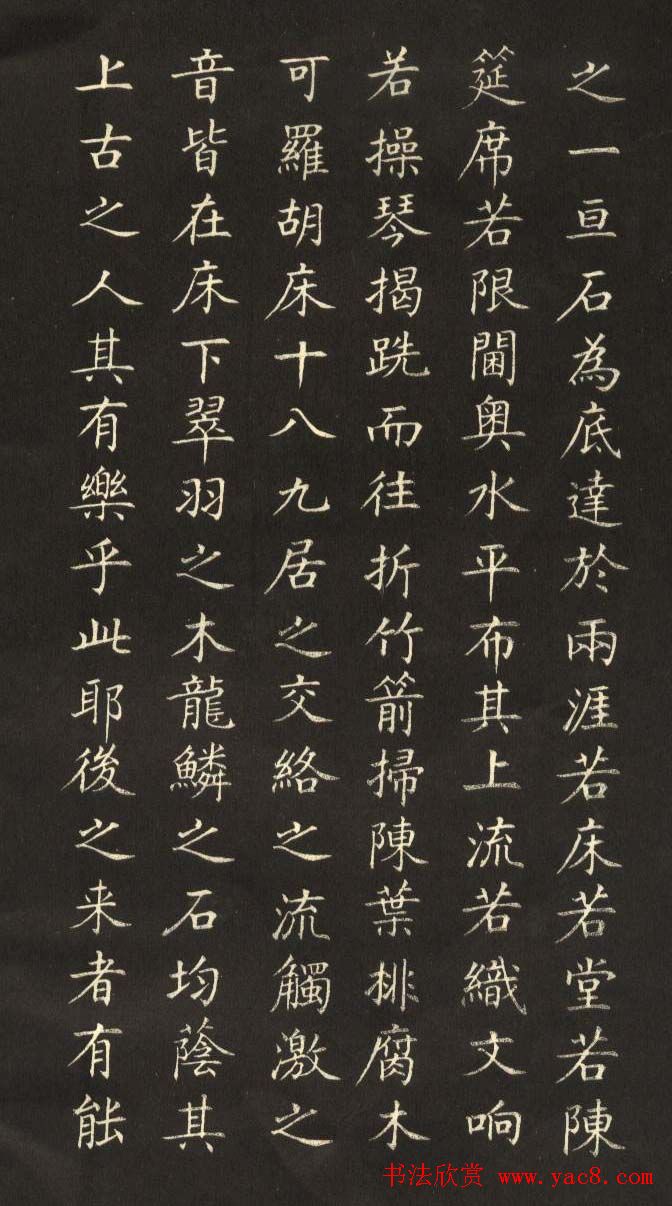 之一亘石為底達於兩涯若床若堂若陳
筵席若限閫奥水平布其上流若織文响
若操琴揭跣而往折竹箭掃陳葉排腐木
可羅胡床十八九居之交絡之流觸激之
音皆在床下翠羽之木龍鱗之石均蔭其
上古之人其有樂乎此耶後之来者有能
书法欣赏 www.yac8.com